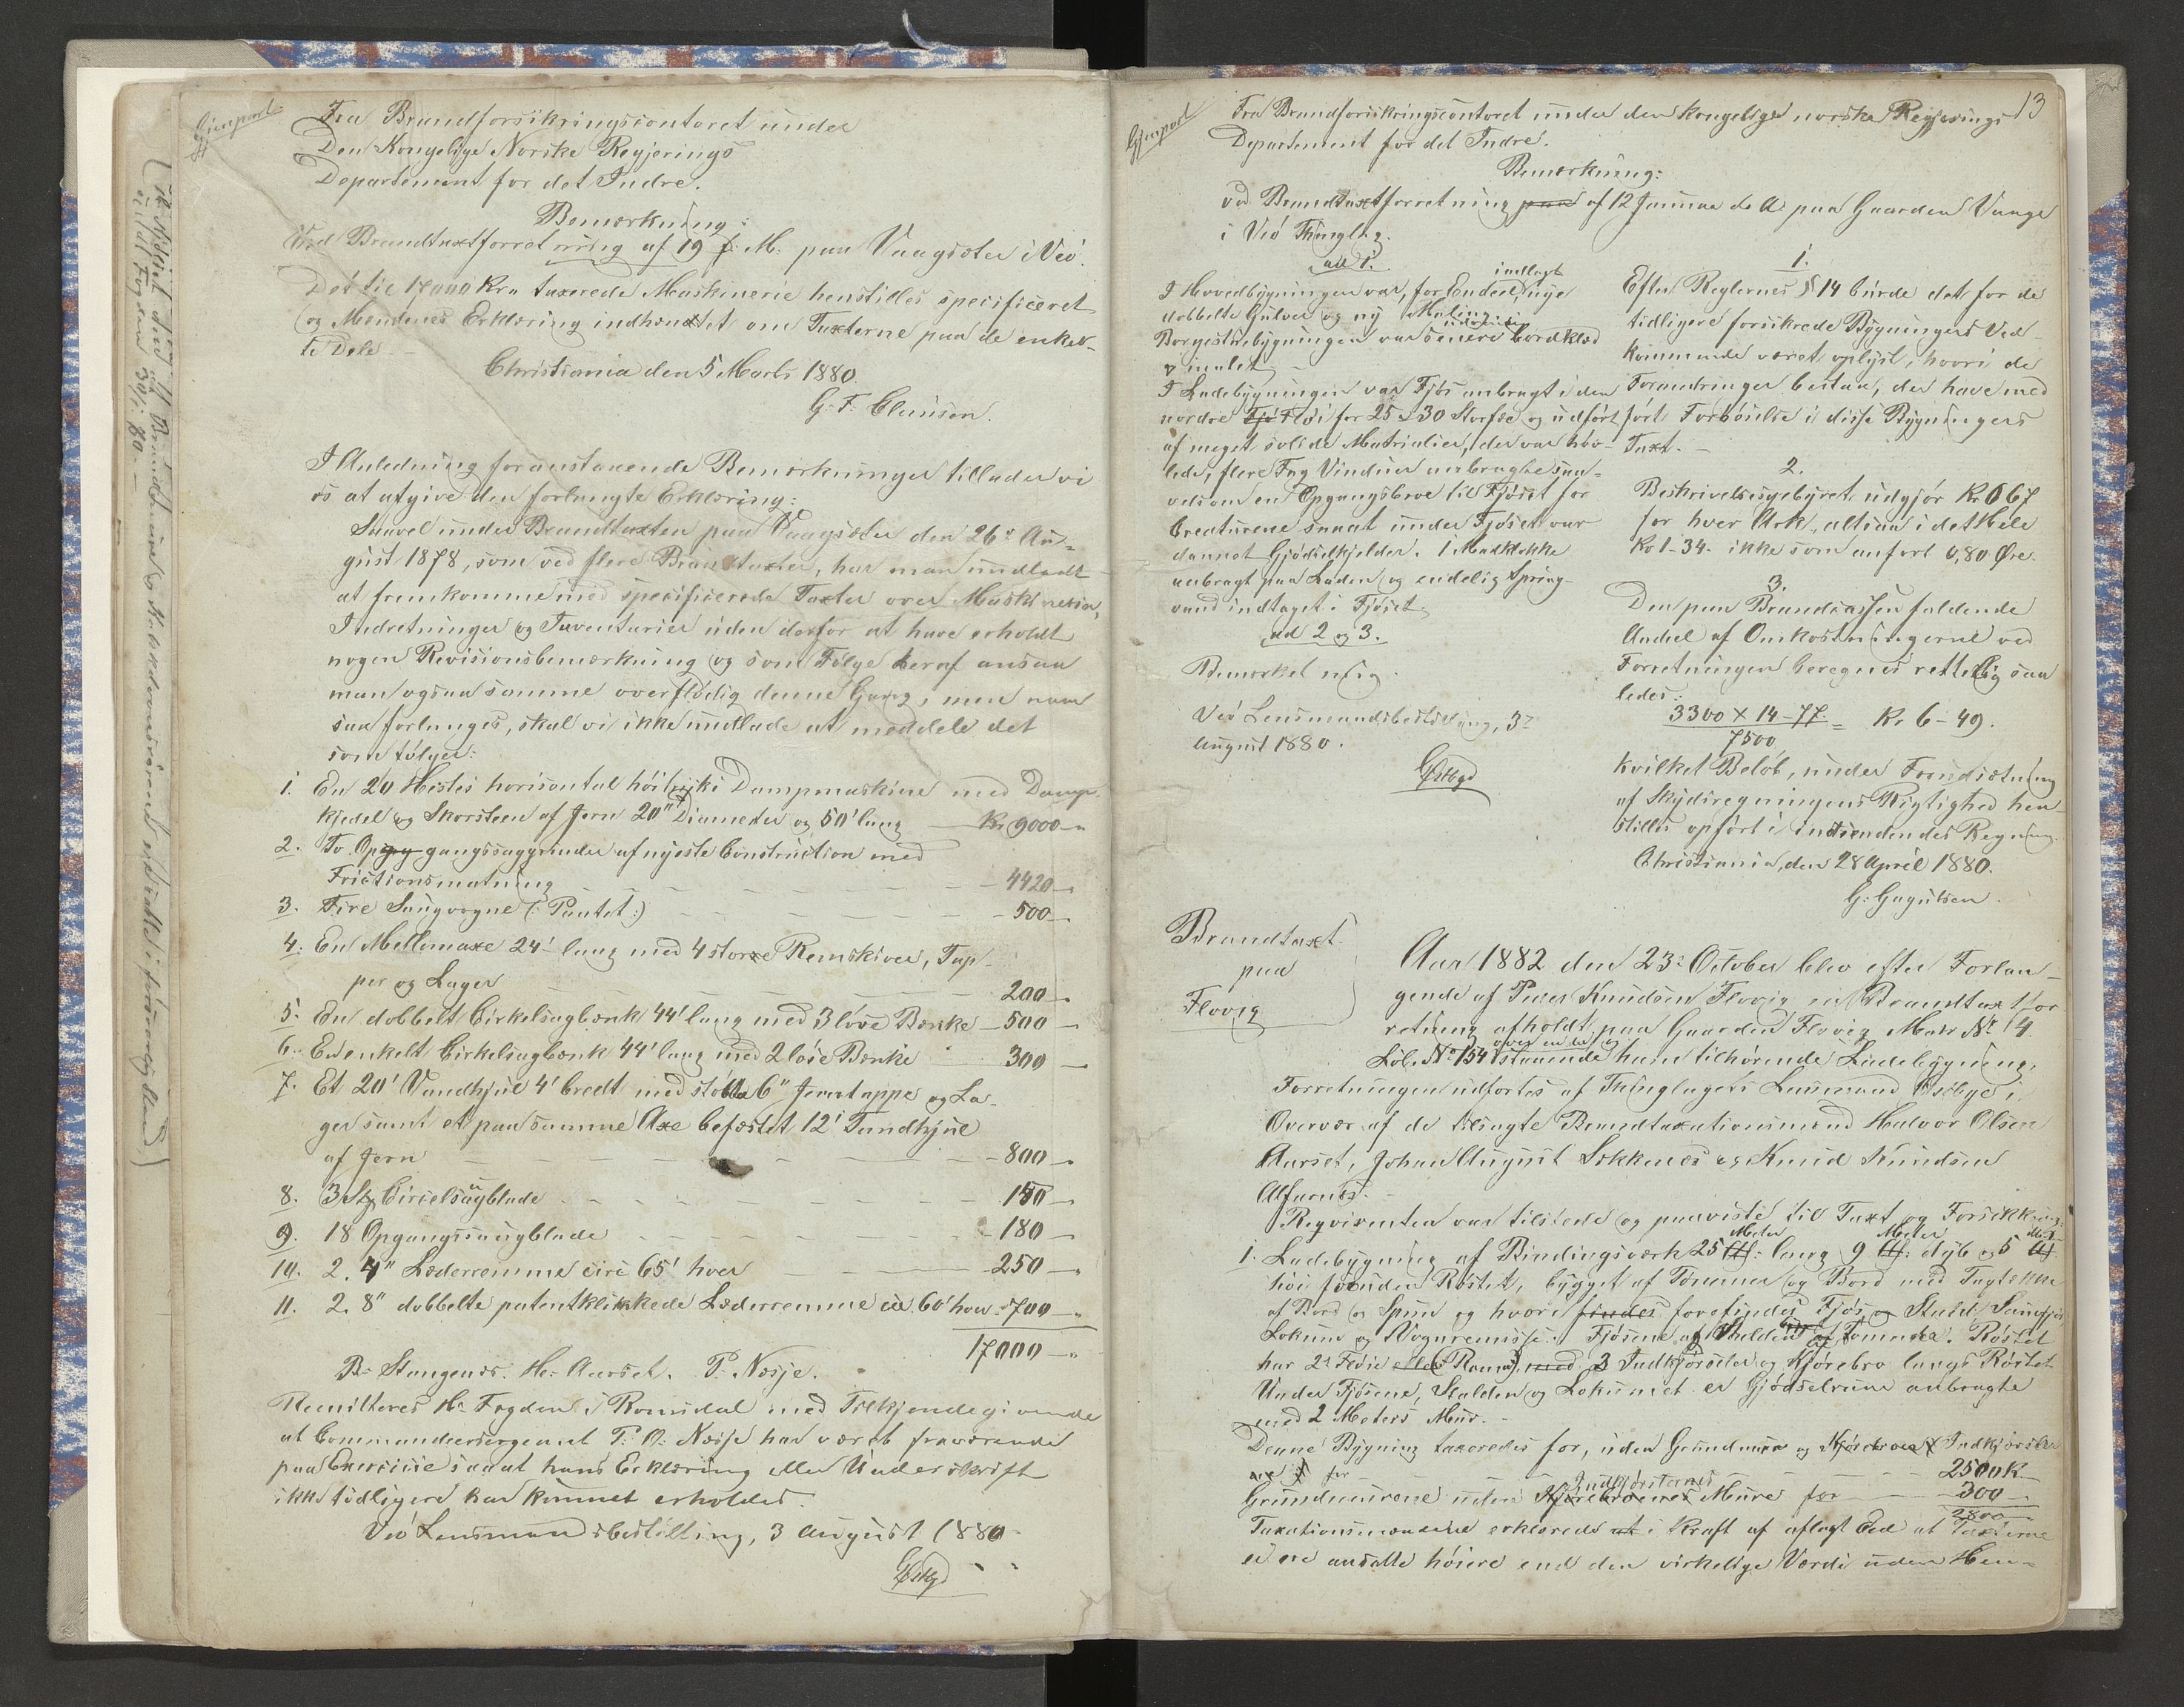 Gjenpart
Fra Brandforsikringscontoret under
Den Kongelige Norske Regjerings
Departement for det Indre.
Bemærkning:
Ved Brandtaxtforretning af 19 f. M. paa Vaagsæter i Veö.
Det til 17000 Kr. taxerede Maskinerie henstilles specificeret
og Mændenes Erklæring indhentet om Taxterne paa de enkel-
te Dele
Christiania den 5 Marts 1880.
G. F. Clausen.
I Anledning foranstaaende Bemærkninger tillader vi
os at afgive den forlangte Erklæring:
Saavel under Brandtaxten paa Vaagsæter den 26de Au-
gust 1878, som ved flere Brandtaxter, har man undladt
at fremkomme med specificerede Taxter over Maskinerier,
Indretninger og Inventarier uden derfor at have erholdt
nogen Revisionsbemærkning og som Følge heraf ansaa
man ogsaa samme overflödig denne Gang, men naar
saa forlanges, skal vi ikke undlade at meddele det
som fölger:
1. En 20 Hestes horisontal höitryks Dampmaskine med Damp-
kjedel og Skorsteen af Jern 20" Diameter og 50' lang Kr. 9000
2. To Opgangssaggrinder af nyeste Construction med
Frictionsmatning 4420
3. Fire Saugvogne (: Pantet :) 500
4. En Mellemaxe 24' lang med 4 store Remskiver, Tap-
per og Lager 200
5. En dobbelt Cirkelsagbænk 44' lang med 3 löse Bænke 500
6. En enkelt Cirkelsagbænk 44' lang med 2 löse Bænke 300
7. Et 20' Vandhjul 4' bredt med stöbte 6" Jerntappe og La-
ger samt et paa samme Axe befæstet 12' Tandhjul
af Jern 800
8. 3 Stk Circelsaugblade 150
9. 18 Opgangssaugblade 180
10. 2. 4" Læderremme circ 65' hver 250
11. 2. 8" dobbelte patentklinkede Læderremme circ. 60' hver 700
17000
B. Stangenes. H. Aarset. P. Næsje.
Remitteres Hr. Fogden i Romsdal med Tilkjendegivende
at Commandeersergeant P. O. Næsje har været fraværende
paa Exercise saaat hans Erklæring eller Underskrift
ikke tidligere har kunnet erholdes.
Veö Lensmandsbestilling, 3 August 1880
Østbye
13
Gjenpart
Fra Brandforsikringscontoret under den kongelige norske Regjerings
Departement for det Indre.
Bemærkning:
Ved Brandtaxtforretning af 12 Januar d. A. paa Gaarden Vange
i Veö Thinglag.
ad 1.
I Hovedbygningen var, for Enden, indlagt nye
dobbelte Gulver og ny Maling.
Borgestubygningen var senere udvendig bordklæd
og malet
I Ladebygningen var Fjös anbragt i den
nordre Flöi for 25 à 30 Storfæ og udfört
af meget solide Matrialier, der var höv-
lede, flere Fag Vinduer anbragte saa-
velsom en Opgangsbroe til Fjöset for
Creaturene saaat under Fjöset var
dannet Gjödselkjelder. 1 Madklokke
anbragt paa Laden og endelig Spring-
vand indtaget i Fjöset.
ad 2 og 3.
Bemærket mig.
Veö Lensmandsbestilling, 3de
August 1880.
Østbye
1.
Efter Reglernes § 14 burde det for de
tidligere forsikrede Bygningers Ved-
kommende været oplyst, hvori de
Forandringer bestaa, der have med-
fört Forhöielse i disse Bygningers
Taxt.
2.
Beskrivelsesgebyret udgjör Kr. 0 67
for hver Ark, altsaa i det Hele
Kr 1-34. ikke som anfört 0,80 Øre.
3.
Den paa Brandcassen faldende
Andeel af Omkostningerne ved
Forretningen beregnes rettelig saa
ledes:
3300 X 14-77 = Kr. 6-49.
7500
hvilket Belöb, under Forudsætning
af Skydsregningens Rigtighed hen-
stilles opfört i indsendendes Regning.
Christiania, den 28 April 1880.
Brandtaxt
paa
Flovig
Aar 1882 den 23de October blev efter Forlan-
gende af Peder Knudsen Flovig en Brandtaxtfor-
retning afholdt paa Gaarden Flovig Matr. No 14
Löb. No 154 over en ny staaende ham tilhörende Ladebygning.
Forretningen udförtes af Thinglagets Lensmand Østbye i
Overvær af de tilsagte Brandtaxationsmænd Halvor Olsen
Aarset, Johan August Sekkenes og Knud Knudsen
Alfarnes.
Reqvirenten var tilstede og paaviste til Taxt og Forsikring:
1. Ladebygning af Bindingsværk 25 Meter lang 9 Meter dyb og 5 Meter
höi foruden Röstet, bygget af Tömmer og Bord med Tagtække
af Bord og Spon og hvori findes forefindes Fjös og Stald, Saufjös,
Lokum og Vognremisse. Fjösene og Stalden af Tömmer. Röstet
har 2de Flöie med 3 Indkjörseler og Kjörebro langs Röstet
Under Fjösene, Stalden og Lokumet er Gjödselrum anbragte
med 2 Meters Mur.
Denne Bygning taxeredes for, uden Grundmur og Indkjörsler
for 2500 K
Grundmurene uden Indkjörslernes Mure for 300
2800
Taxationsmændene erklærede i Kraft af aflagt Eed at Taxterne
ei ere ansatte höiere end den virkelige Værdi uden Hen-